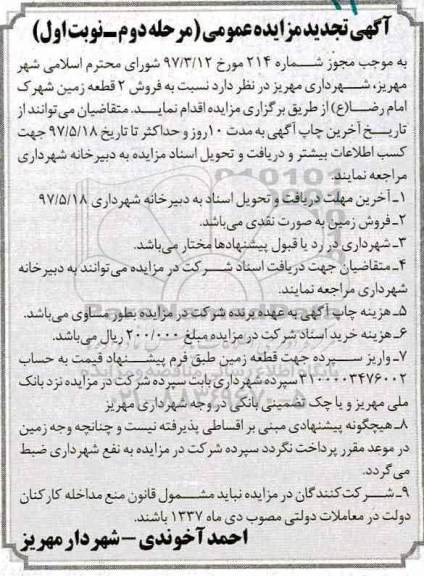 آگهی تجدید مزایده عمومی (مرحله دوم ـ نوبت اول)
به موجب مجوز شماره ۲۱۴ مورخ ۹۷/۳/۱۲ شورای محترم اسلامی شهر
مهریز، شهرداری مهریز در نظر دارد نسبت به فروش ۲ قطعه زمین شهرک
امام رضا(ع) از طریق برگزاری مزایده اقدام نماید. متقاضیان می‌توانند از
تاریخ آخرین چاپ آگهی به مدت ۱۰ روز و حداکثر تا تاریخ ۹۷/۵/۱۸ جهت
کسب اطلاعات بیشتر و دریافت و تحویل اسناد مزایده به دبیرخانه شهرداری
مراجعه نمایند.
۱ـ آخرین مهلت دریافت و تحویل اسناد به دبیرخانه شهرداری ۹۷/۵/۱۸
۲ـ فروش زمین به صورت نقدی می‌باشد.
۳ـ شهرداری در رد یا قبول پیشنهادها مختار می‌باشد.
۴ـ متقاضیان جهت دریافت اسناد شرکت در مزایده می‌توانند به دبیرخانه
شهرداری مراجعه نمایند.
۵ـ هزینه چاپ آگهی به عهده برنده شرکت در مزایده بطور مساوی می‌باشد.
۶ـ هزینه خرید اسناد شرکت در مزایده مبلغ ۲۰۰/۰۰۰ ریال می‌باشد.
۷ـ واریز سپرده جهت قطعه زمین طبق فرم پیشنهاد قیمت به حساب
۳۱۰۰۰۰۳۴۷۶۰۰۲ سپرده شهرداری بابت سپرده شرکت در مزایده نزد بانک
ملی مهریز و یا چک تضمینی بانکی در وجه شهرداری مهریز
۸ـ هیچگونه پیشنهادی مبنی بر اقساطی پذیرفته نیست و چنانچه وجه زمین
در موعد مقرر پرداخت نگردد سپرده شرکت در مزایده به نفع شهرداری ضبط
می‌گردد.
۹ـ شرکت‌کنندگان در مزایده نباید مشمول قانون منع مداخله کارکنان
دولت در معاملات دولتی مصوب دی ماه ۱۳۳۷ باشند.
احمد آخوندی – شهردار مهریز